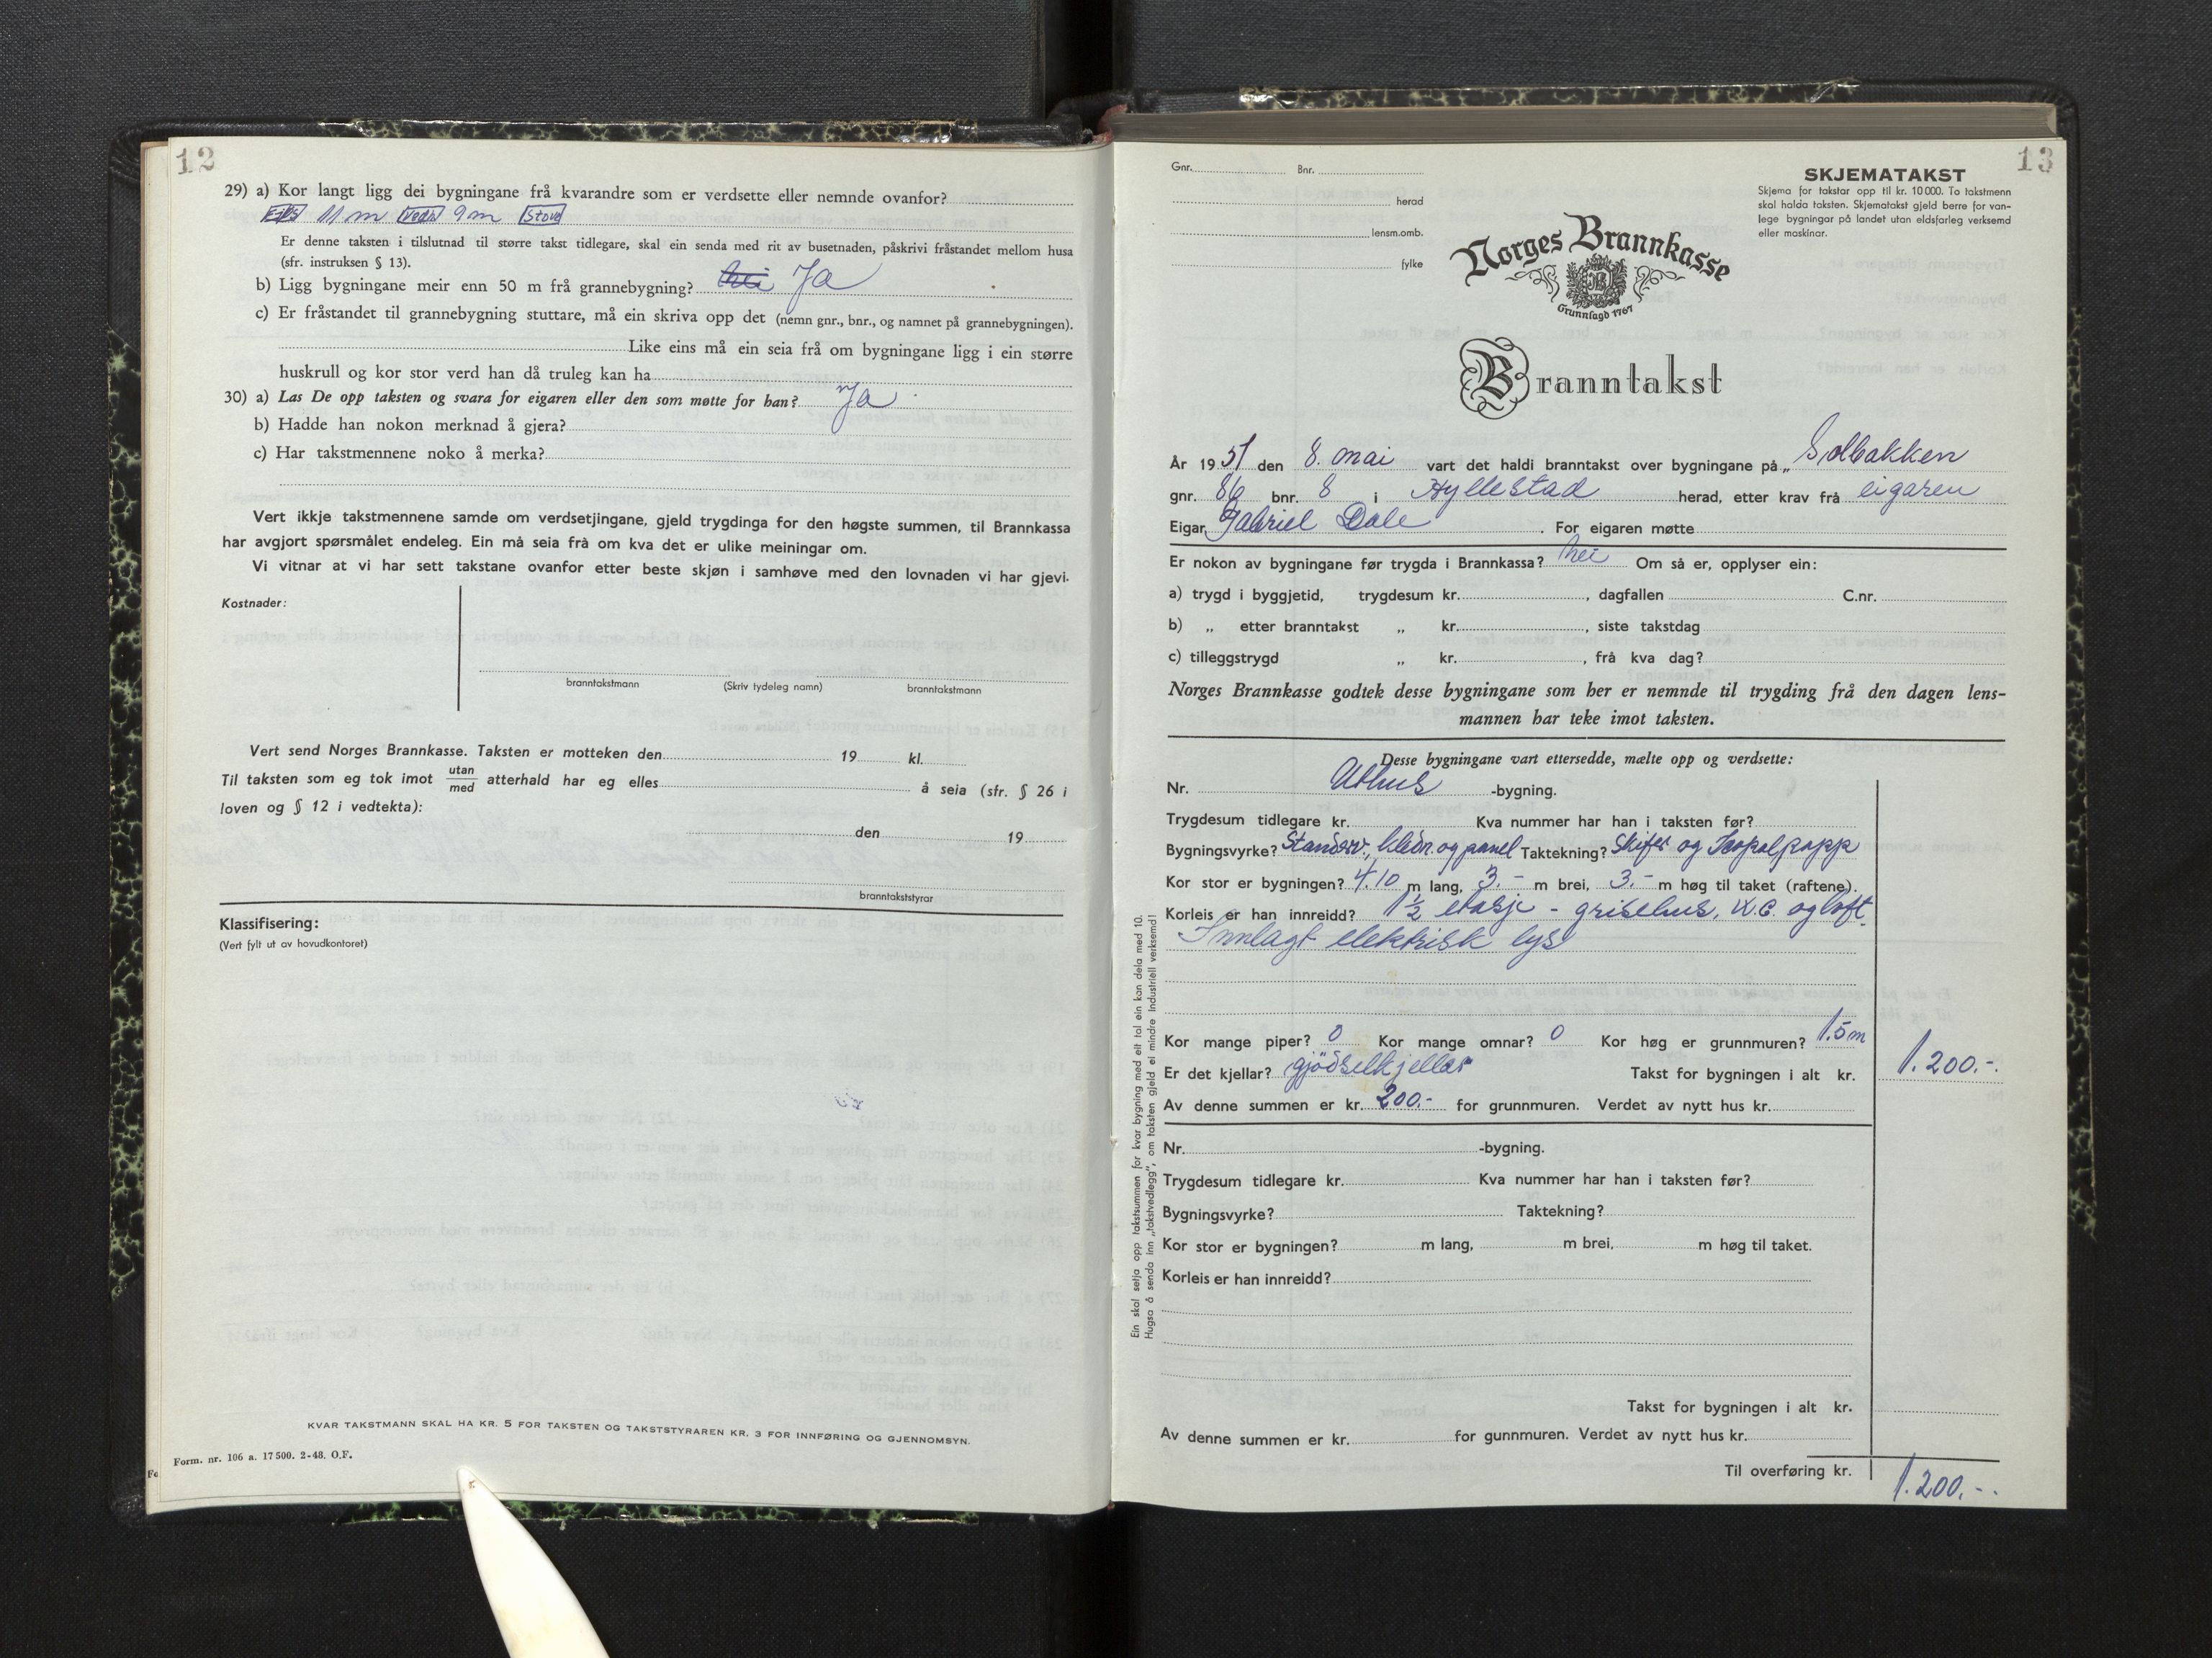 12
29) a) Kor langt ligg dei bygningane frå kvarandre som er verdsette eller nemnde ovanfor?
11 m Vedh 9 m Stove
Er denne taksten i tilslutnad til større takst tidlegare, skal ein senda med rit av busetnaden, påskrivi fråstandet mellom husa
(sfr. instruksen § 13).
b) Ligg bygningane meir enn 50 m frå grannebygning? Nei Ja
c) Er fråstandet til grannebygning stuttare, må ein skriva opp det (nemn gnr., bnr., og namnet på grannebygningen).
Like eins må ein seia frå om bygningane ligg i ein større
huskrull og kor stor verd han då truleg kan ha
30) a) Las De opp taksten og svara for eigaren eller den som møtte for han? Ja
b) Hadde han nokon merknad å gjera?
c) Har takstmennene noko å merka?
Vert ikkje takstmennene samde om verdsetjingane, gjeld trygdinga for den høgste summen, til Brannkassa
har avgjort spørsmålet endeleg. Ein må seia frå om kva det er ulike meiningar om.
Vi vitnar at vi har sett takstane ovanfor etter beste skjøn i samhøve med den lovnaden vi har gjevi.
Kostnader:
branntakstmann (Skriv tydeleg namn) branntakstmann
Vert send Norges Brannkasse. Taksten er motteken den 19 kl.
Til taksten som eg tok imot utan/med atterhald har eg elles å seia (sfr. § 26 i
loven og § 12 i vedtekta):
den 19
branntakststyrar
Klassifisering:
(Vert fylt ut av hovudkontoret)
KVAR TAKSTMANN SKAL HA KR. 5 FOR TAKSTEN OG TAKSTSTYRAREN KR. 3 FOR INNFØRING OG GJENNOMSYN.
Form. nr. 106 a. 17500. 2-48. O.F.
Fo
13
Gnr. Bnr.
herad
lensm.omb.
fylke
SKJEMATAKST
Skjema for takstar opp til kr. 10 000. To takstmenn
skal halda taksten. Skjematakst gjeld berre for van-
lege bygningar på landet utan eldsfarleg verksemd
eller maskinar.
Norges Brannkasse
Grunnlagd 1767
Branntakst
År 1951 den 8. mai vart det haldi branntakst over bygningane på „Solbakken
gnr. 86 bnr. 8 i Hyllestad herad, etter krav frå eigaren
Eigar Gabriel Dale. For eigaren møtte
Er nokon av bygningane før trygda i Brannkassa? Nei Om så er, opplyser ein:
a) trygd i byggjetid, trygdesum kr. , dagfallen C.nr.
b) „ etter branntakst „ kr. , siste takstdag
c) tilleggstrygd „ kr. , frå kva dag?
Norges Brannkasse godtek desse bygningane som her er nemnde til trygding frå den dagen lens-
mannen har teke imot taksten.
Desse bygningane vart ettersedde, mælte opp og verdsette:
Nr. Uthus -bygning.
Trygdesum tidlegare kr. Kva nummer har han i taksten før?
Bygningsvyrke? Standerv., kledn. og panel Taktekning? Skifer og Isopalpapp
Kor stor er bygningen? 4.10 m lang, 3.- m brei, 3.- m høg til taket (raftene).
Korleis er han innreidd? 1 1/2 etasje - grisehus, W.C. og loft.
Innlagt elektrisk lys
Kor mange piper? 0 Kor mange omnar? 0 Kor høg er grunnmuren? 1.5 m
Er det kjellar? gjødselkjellar Takst for bygningen i alt kr. 1.200.-.
Av denne summen er kr. 200.- for grunnmuren. Verdet av nytt hus kr.
Nr. -bygning.
Trygdesum tidlegare kr. Kva nummer har han i taksten før?
Bygningsvyrke? Taktekning?
Kor stor er bygningen? m lang, m brei, m høg til taket.
Korleis er han innreidd?
Takst for bygningen i alt kr.
Av denne summen er kr. for gunnmuren. Verdet av nytt hus kr.
Til overføring kr. 1.200.-.
Ein skal setja opp takstsummen for kvar bygning med eit tal ein kan dela med 10.
Hugsa å senda inn „takstvedlegg", om taksten gjeld ei mindre industriell verksemd!